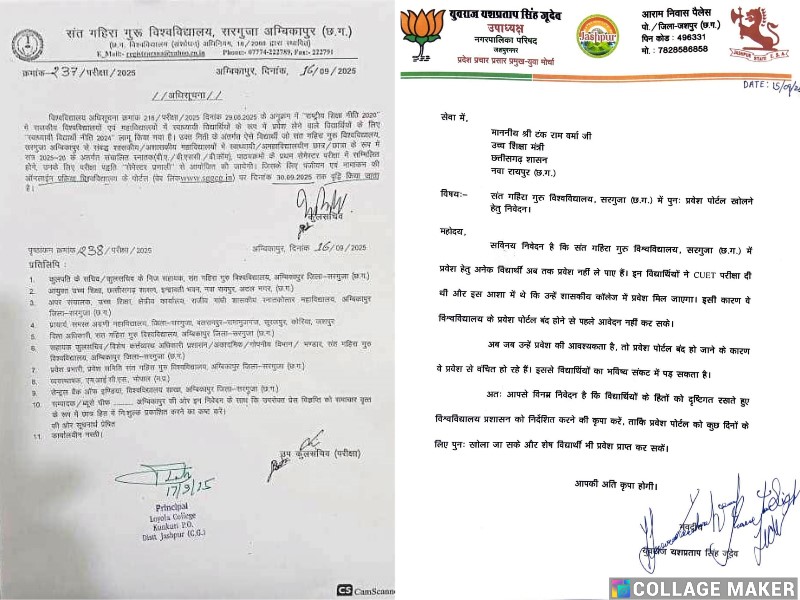 संत गहिरा गुरू विश्वविद्यालय, सरगुजा अम्बिकापुर (छ.ग.)
(छ.ग. विश्वविद्यालय (संशोधन) अधिनियम, 18/2008 द्वारा स्थापित)
E.Mail:- registrarsu@yahoo.in Phone:- 07774-222789, Fax:-222791
क्रमांक-237/परीक्षा/2025 अम्बिकापुर, दिनांक, 16/09/2025
//अधिसूचना//
विश्वविद्यालय अधिसूचना क्रमांक 218/परीक्षा/2025 दिनांक 29.08.2025 के अनुक्रम में "राष्ट्रीय शिक्षा नीति 2020"
में राजकीय विश्वविद्यालयों एवं महाविद्यालयों में स्वाध्यायी विद्यार्थियों के रूप में प्रवेश लेने वाले विद्यार्थियों के लिए
"स्वाध्यायी विद्यार्थी नीति 2024" लागू किया गया है। उक्त निती के अंतर्गत ऐसे विद्यार्थी जो संत गहिरा गुरू विश्वविद्यालय,
सरगुजा अम्बिकापुर से संबद्ध शासकीय/अशासकीय महाविद्यालयों में स्वाध्यायी/अमहाविद्यालयीन छात्र/छात्रा के रूप में
सत्र 2025-26 के अंतर्गत संचालित स्नातक(बी.ए./बी.एससी./बी.कॉम), पाठ्यक्रमों के प्रथम सेमेस्टर परीक्षा में सम्मिलित
होंगे, उनके लिए परीक्षा पद्धति "सेमेस्टर प्रणाली" से आयोजित की जायेगी। जिसके लिए पंजीयन एवं नामांकन की
ऑनलाईन प्रक्रिया विश्वविद्यालय के पोर्टल (वेब लिंकwww.sggcg.in) पर दिनांक 30.09.2025 तक वृद्धि किया जाता
है।
कुलसचिव
पृष्ठांकन क्रमांक 238/परीक्षा/2025 अम्बिकापुर, दिनांक 16/09/2025
प्रतिलिपि :
1. कुलपति के सचिव/कुलसचिव के निज सहायक, संत गहिरा गुरू विश्वविद्यालय, अम्बिकापुर जिला-सरगुजा (छ.ग.)
2. आयुक्त उच्च शिक्षा, छत्तीसगढ़ शासन, इन्द्रावती भवन, नवा रायपुर, अटल नगर, (छ.ग.)
3. अपर संचालक, उच्च शिक्षा, क्षेत्रीय कार्यालय, राजीव गांधी शासकीय स्नातकोत्तर महाविद्यालय, अम्बिकापुर
जिला-सरगुजा (छ.ग.)
4. प्राचार्य, समस्त अग्रणी महाविद्यालय, जिला-सरगुजा, बलरामपुर-रामानुजगंज, सूरजपुर, कोरिया, जशपुर
5. वित्त अधिकारी, संत गहिरा गुरू विश्वविद्यालय, अम्बिकापुर जिला-सरगुजा (छ.ग.)
6. सहायक कुलसचिव/विशेष कर्त्तव्यस्थ अधिकारी प्रशासन/अकादमिक/गोपनीय विभाग/ भण्डार, संत गहिरा गुरू
विश्वविद्यालय, अम्बिकापुर जिला-सरगुजा (छ.ग.)
7. प्रवेश प्रभारी, प्रवेश समिति संत गहिरा गुरू विश्वविद्यालय, अम्बिकापुर जिला-सरगुजा (छ.ग.)
8. व्यवस्थापक, एम.आई.सी.एस, भोपाल (म.प्र.)
9. सेन्ट्रल बैंक ऑफ इण्डिया, विश्वविद्यालय शाखा, अम्बिकापुर जिला-सरगुजा (छ.ग.)
10. सम्पादक/ब्यूरो चीफ .......... अम्बिकापुर की ओर इस निवेदन के साथ कि उपरोक्त प्रेस विज्ञप्ति को समाचार वृत्त
के रूप में छात्र हित में निःशुल्क प्रकाशित करने का कष्ट करें।
की ओर सूचनार्थ प्रेषित
11. कार्यालयीन नस्ती।
उप कुलसचिव (परीक्षा)
17/9/25
Principal
Loyola College
Kunkuri P.O.
Distt. Jashpur (C.G.)
CS CamScanne
युवराज यशप्रताप सिंह जूदेव
उपाध्यक्ष
नगरपालिका परिषद
जशपुरनगर
प्रदेश प्रचार प्रसार प्रमुख-युवा मोर्चा
Jashpur
आराम निवास पैलेस
पो./जिला-जशपुर (छ.ग.)
पिन कोड : 496331
मो. : 7828588858
JASHPUR STATE C.S.A.
DATE: 15/09/
सेवा में,
माननीय श्री टंक राम वर्मा जी
उच्च शिक्षा मंत्री
छत्तीसगढ़ शासन
नवा रायपुर (छ.ग.)
विषय:- संत गहिरा गुरु विश्वविद्यालय, सरगुजा (छ.ग.) में पुनः प्रवेश पोर्टल खोलने
हेतु निवेदन।
महोदय,
सविनय निवेदन है कि संत गहिरा गुरु विश्वविद्यालय, सरगुजा (छ.ग.) में
प्रवेश हेतु अनेक विद्यार्थी अब तक प्रवेश नहीं ले पाए हैं। इन विद्यार्थियों ने CUET परीक्षा दी
थी और इस आशा में थे कि उन्हें शासकीय कॉलेज में प्रवेश मिल जाएगा। इसी कारण वे
विश्वविद्यालय के प्रवेश पोर्टल बंद होने से पहले आवेदन नहीं कर सके।
अब जब उन्हें प्रवेश की आवश्यकता है, तो प्रवेश पोर्टल बंद हो जाने के कारण
वे प्रवेश से वंचित हो रहे हैं। इससे विद्यार्थियों का भविष्य संकट में पड़ सकता है।
अतः आपसे विनम्र निवेदन है कि विद्यार्थियों के हितों को दृष्टिगत रखते हुए
विश्वविद्यालय प्रशासन को निर्देशित करने की कृपा करें, ताकि प्रवेश पोर्टल को कुछ दिनों के
लिए पुनः खोला जा सके और शेष विद्यार्थी भी प्रवेश प्राप्त कर सकें।
आपकी अति कृपा होगी।
भवदीय
युवराज यशप्रताप सिंह जूदेव
COLLAGE MAKER